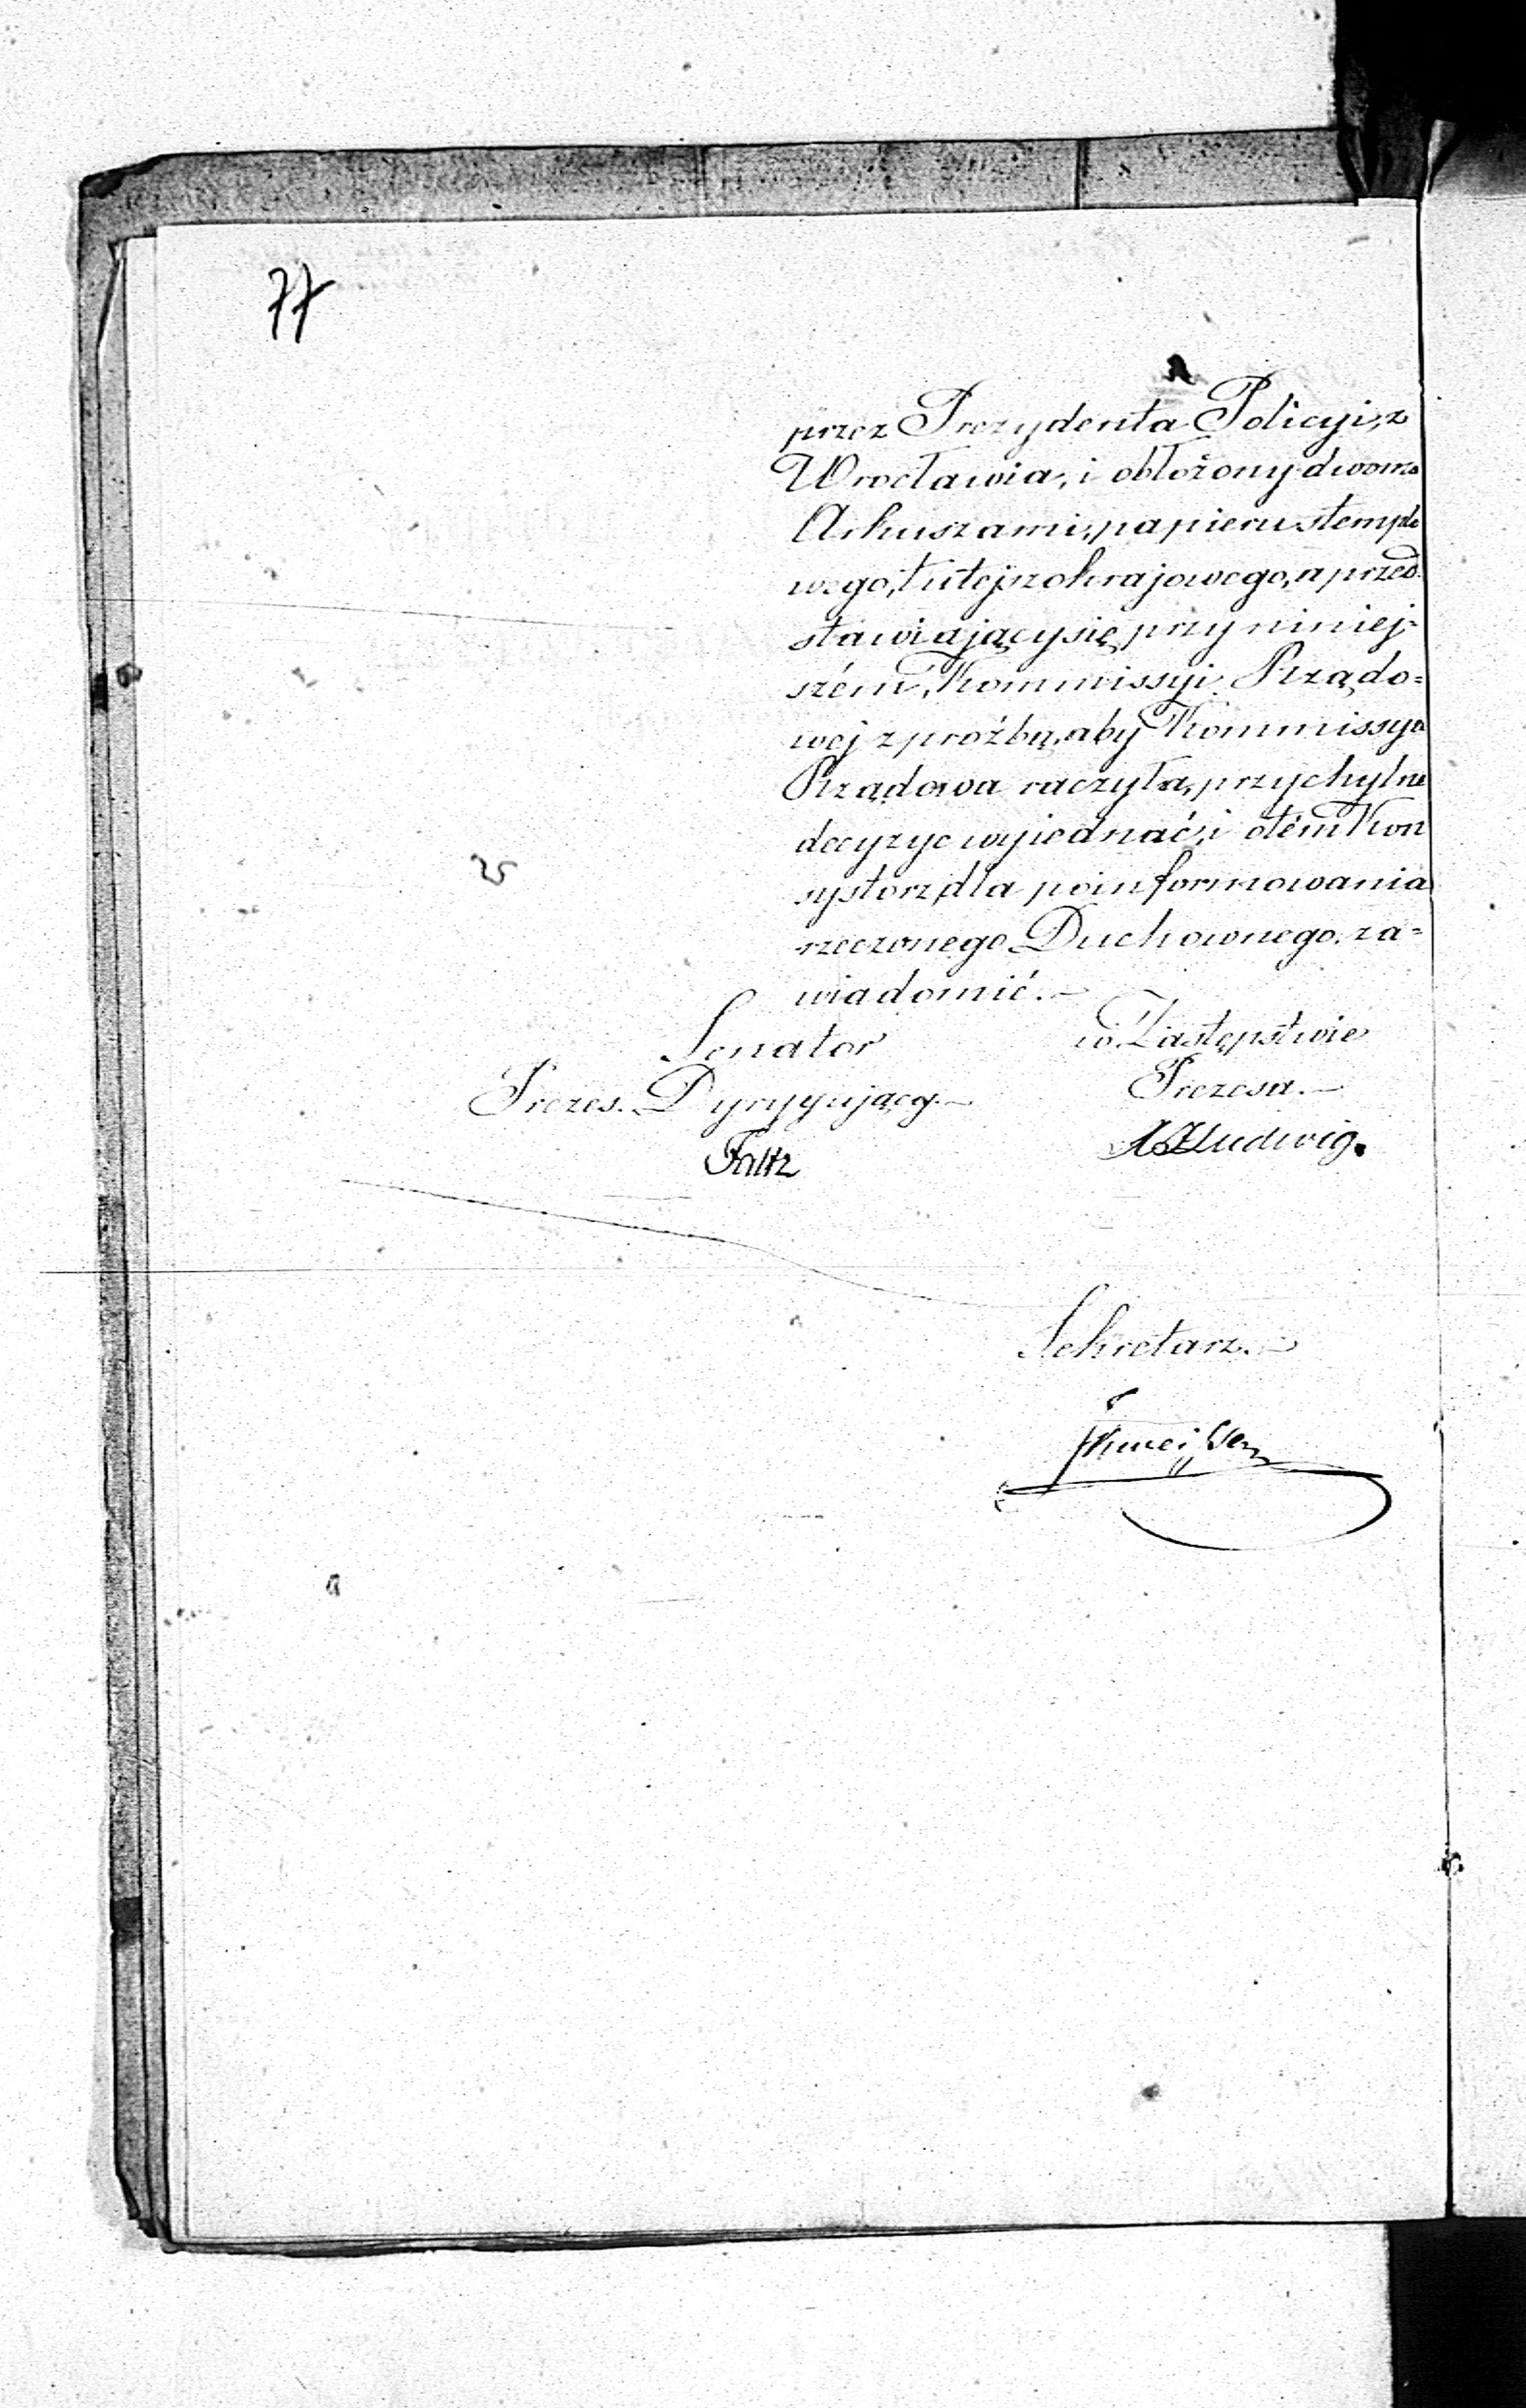 77
przez Prezydenta Policyi, z
Wrocławia, i obłożony dwoma
Arkuszami, papieru stemplo
wego, tutejszokrajowego, a przed
stawiający się, przy niniej-
szém, Kommissyi Rządo=
wej z proźbą, aby Kommissya
Rządowa raczyła, przychylne
decyzye wyjednać, i otém Kon
systorz, dla poinformowania
rzeczonego Duchownego, za=
wiadomić.—
Senator
Prezes Dyrygujący.—
Faltz
w Zastępstwie
Prezesa.—
Ludwig.
Sekretarz.—